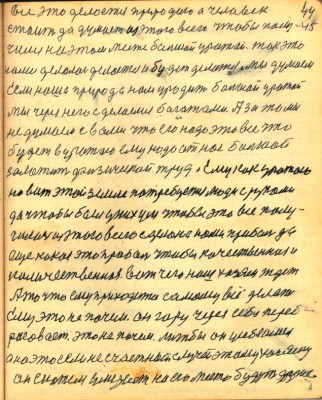 Все это делается природа человек 44
стоит да думает из этого всего чтобы полу- 45
чился на этом месте большой урожай. так это
нами делалося делается и будет делаться. Мы думаем
если наша природа нам уродит большой урожай
Мы через него сделаемся богатыми. А за то мы
не думаем с вами что его надо это все это
будет в урожаю ему надо от нас большой
заложит физический труд. Ему как урожаю
на вот этой земле потребуется люди с руками
да чтобы был у них ум чтобы это все полу-
чилось из этого всего сделана нами прибыль да
еще какая это прибыль чтобы качественная и
количественная. вот чего наш хозяин ждет
А то что ему приходится самому всё делать
Ему это не почем. он гору через себя переб-
расывает. это не почем. лишь бы он
а на это если не счастный случай этому хозяину
он скажем умрет на его место будут другие